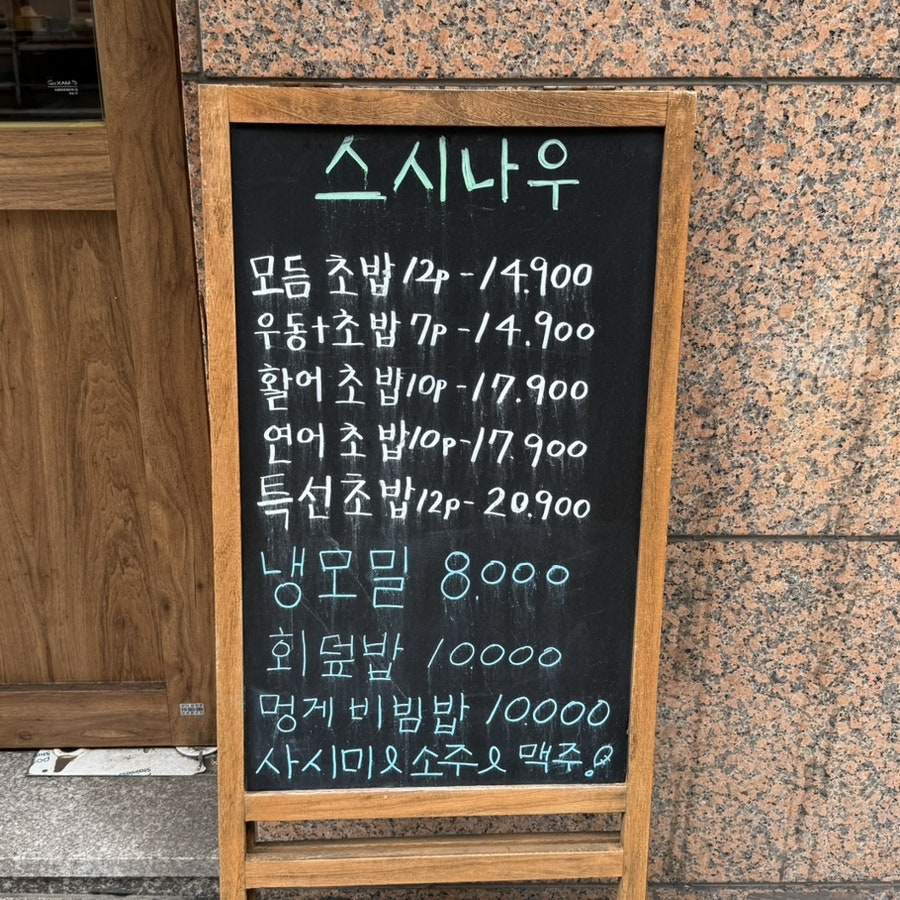 스시나우
모듬 초밥 12p - 14.900
우동+초밥 7p - 14.900
활어 초밥 10p - 17.900
연어 초밥 10p - 17.900
특선초밥 12p - 20.900
냉모밀 8.000
회덮밥 10.000
멍게 비빔밥 10.000
사시미 & 소주 & 맥주!